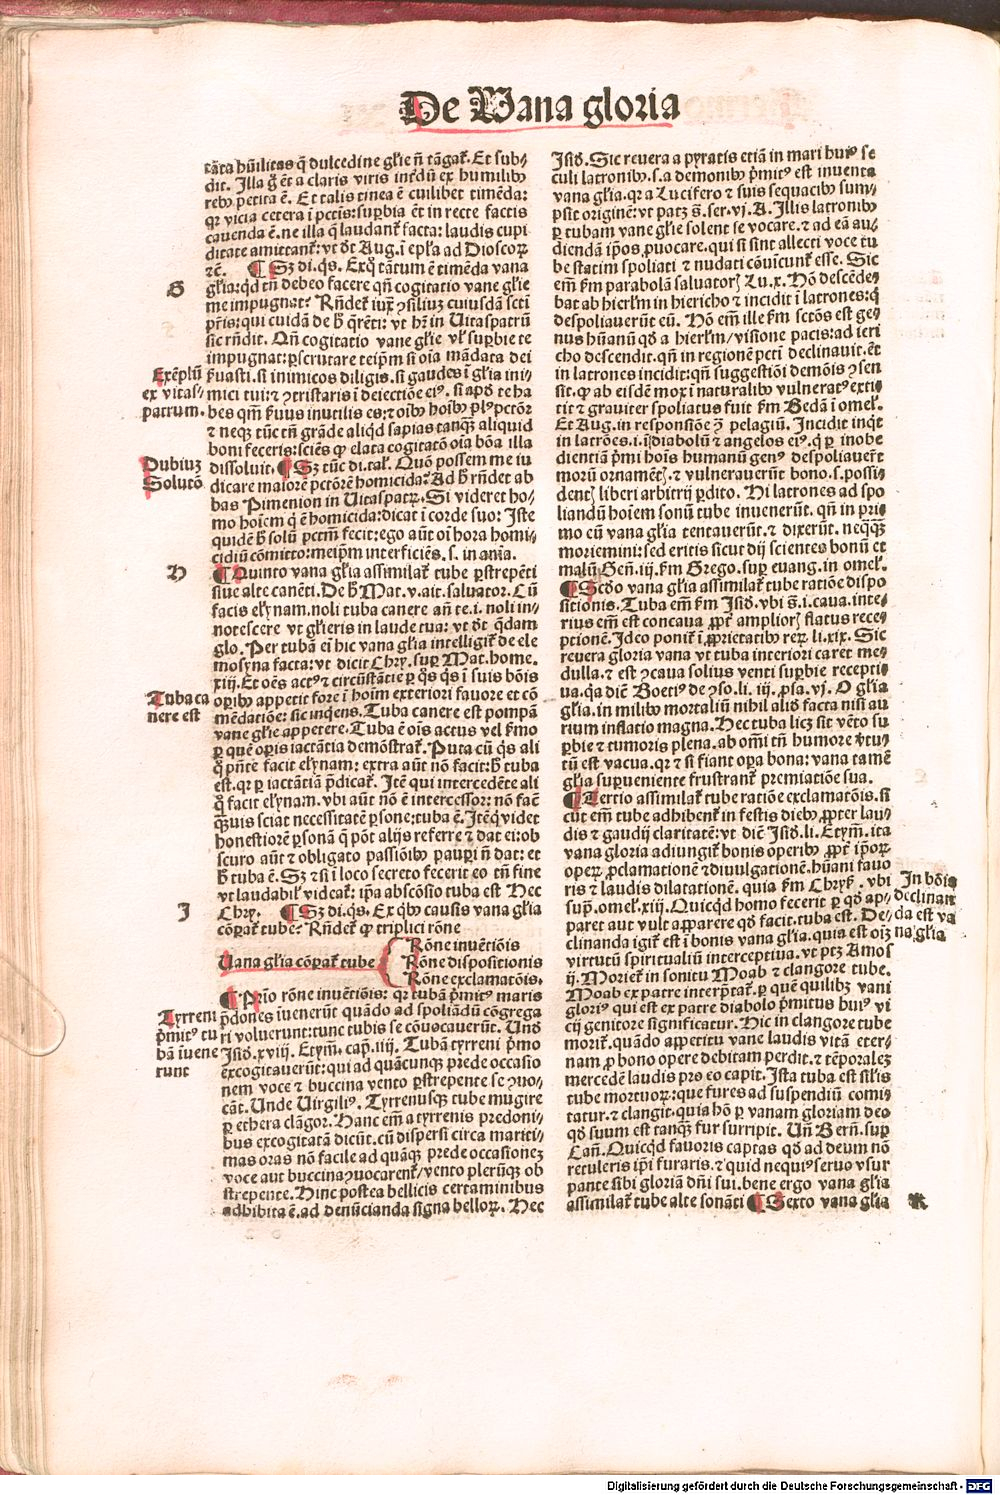 De Vana gloria
tāta hūilitas q̄ dulcedine gl̄ie n̄ tāgat̄. Et sub⸗
dit. Illa ḡ ēt a claris viris infdū ex humilibꝰ
rebꝰ petita ē. Et talis tinea ē cuilibet timēda:
qr vicia cetera ī pctīs: supbia ēt in recte factis
cauenda ē. ne illa q̄ laudant̄ facta: laudis cupi
ditate amittant̄: vt dt Aug. ī epl̄a ad Dioscoꝝ
ꝛc̄. ¶ Sꝫ di. qs. Exq̄ tātum ē timēda vana
G
gl̄ia: qd tn̄ debeo facere qn̄ cogitatio vane gl̄ie
me impugnat? Rn̄det̄ iuxͣ ꝯsiliuꝫ cuiusdā scti
pr̄is: qui cuidā de h̄ q̄rēti: vt hꝫ in Uitaspatrū
sic rn̄dit. Qn̄ cogitatio vane gl̄ie vl̄ supbie te
impugnat: pscrutare teip̄m si oīa mādata dei
Exēplū
ex vitas⸗
patrum.
f̄uasti. si inimicos diligis. si gaudes ī gl̄ia ini⸗
mici tui: ⁊ ꝯtristaris ī deiectiōe eiꝰ. si apd te ha
bes qm̄ f̄uus inutilis es: ⁊ oībꝰ hoībꝰ plꝰ pctōr
⁊ neqꝫ tūc tn̄ grāde aliqd sapias tanqꝫ aliquid
boni feceris: sciēs ꝙ elata cogitatō oīa bōa illa
Dubiuꝫ
Solutō
dissoluit. ¶ Sꝫ tūc di. tal̄. Quō possem me iu
dicare maiorē pctōrē homicida? Ad h̄ rn̄det ab
bas Pimenion in Uitaspatꝝ. Si videret ho⸗
mo hoīem q̄ ē homicida: dicat ī corde suo: Iste
quidē h̄ solū pctm̄ fecit: ego aūt oī hora homi⸗
cidiū cōmitto: meip̄m interficiēs. s. in aīa.
H
¶ Quinto vana gl̄ia assimilat̄ tube pstrepēti
siue alte canēti. De h̄ Mat. v. ait. saluator. Cū
facis elynam. noli tuba canere añ te. i. noli in⸗
notescere vt gl̄ieris in laude tua: vt dt qdam
glo. Per tubā ei hic vana gl̄ia intelligit̄ de ele
mosyna facta: vt dicit Chry. sup Mat. home.
xiij. Et oēs actꝰ ⁊ circūstātie p qs qs ī suis bōis
Tuba ca
nere est
opibꝰ appetit fore ī hoīm exteriori fauore et cō
mēdatiōe: sic inqens. Tuba canere est pompā
vane gl̄ie appetere. Tuba ē oīs actus vel f̄mo
p quē opis iactātia demōstrat̄. Puta cū qs ali
q̄ pn̄te facit elynam: extra aūt nō facit: h̄ tuba
est. qr p iactātiā pdicat̄. Itē qui intercedēte ali
q̄ facit elynam. vbi aūt nō ē intercessor: nō faē
quis sciat necessitatē psone: tuba ē. Itēq̄ videt
honestiorē psonā q̄ pōt alijs referre ⁊ dat ei: ob
scuro aūt ⁊ obligato passiōibꝰ paupi n̄ dat: et
h̄ tuba ē. Sꝫ ⁊ si ī loco secreto fecerit eo tn̄ fine
vt laudabil̄ videat̄: ip̄a abscōsio tuba est Hec
I
Chry. ¶ Sꝫ di. qs. Ex qbꝰ causis vana gl̄ia
cōpat̄ tube? Rn̄det̄ ꝙ triplici rōne
Uana gl̄ia cōpat̄ tube
Rōne inuētiōis
Rōne dispositionis
Rōne exclamatōis.
¶ Prīo rōne inuētiōis: qr tubā pmitꝰ maris
Tyrreni
pmitꝰ tu
bā iuene
runt
pdones iuenerūt quādo ad spoliādū cōgrega
ri voluerunt: tunc tubis se cōuocauerūt. Und̄
Isid. xviij. Etym. cap. iiij. Tubā tyrreni pmo
excogitauerūt: qui ad quācunqꝫ prede occasio
nem voce ⁊ buccina vento pstrepente se ꝯuo⸗
cāt. Unde Uirgiliꝰ. Tyrrenusqꝫ tube mugire
p ethera clāgor. Hanc em̄ a tyrrenis predoni⸗
bus excogitatā dicūt. cū dispersi circa mariti⸗
mas oras nō facile ad quāqꝫ prede occasionez
voce aut buccina ꝯuocarent̄/ vento plerūqꝫ ob
strepente. Hinc postea bellicis certaminibus
adhibita ē. ad denūcianda signa belloꝝ. Hec
Isid. Sic reuera a pyratis etiā in mari huiꝰ se
culi latronibꝰ. s. a demonibꝰ pmitꝰ est inuenta
vana gl̄ia. qr a Lucifero ⁊ suis sequacibꝰ sum⸗
psit originē: vt patꝫ s̄. ser. vj. A. Illis latronibꝰ
p tubam vane gl̄ie solent se vocare. ⁊ ad eā au⸗
diendā ip̄os ꝓuocare. qui si sint allecti voce tu
be statim spoliati ⁊ nudati cōuīcunt̄ esse. Sic
em̄ fm̄ parabolā saluatorꝫ Lu. x. Hō descēde⸗
bat ab hierl̄m in hiericho ⁊ incidit ī latrones: q̄
despoliauerūt eū. Hō em̄ ille fm̄ sctōs est ge⸗
nus hūanū qd a hierl̄m/ visione pacis: ad ieri
cho descendit. qn̄ in regionē pcti declinauit. et
in latrones incidit: qn̄ suggestiōi demōis ꝯsen
sit. ꝙ ab eisdē mox ī naturalibꝰ vulneratꝰ exti⸗
tit ⁊ grauiter spoliatus fuit fm̄ Bedā ī omel̄.
Et Aug. in responsiōe ꝯͣ pelagiū. Incidit inqt
in latrōes. i. ī diabolū ⁊ angelos eiꝰ. q̄ p inobe
dientiā pmi hoīs humanū genꝰ despoliauert̄
morū ornamētꝫ. ⁊ vulnerauerūt bono. s. possi⸗
dendꝫ liberi arbitrij pdito. Hi latrones ad spo
liandū hoīem sonū tube inuenerūt. qn̄ in pri⸗
mo cū vana gl̄ia tentauerūt. ⁊ dixerūt. neqqꝫ
moriemini: sed eritis sicut dij scientes bonū et
malū Gen̄. iij. fm̄ Grego. sup euang. in omel̄.
¶ Scdo vana gl̄ia assimilat̄ tube ratiōe dispo
sitionis. Tuba em̄ fm̄ Isid. vbi s̄. i. caua. inte⸗
rius em̄ est concaua ꝓpt̄ ampliorꝫ flatus rece⸗
ptionē. Ideo ponit̄ ī ꝓprietatibꝰ reꝝ li. xix. Sic
reuera gloria vana vt tuba interiori caret me⸗
dulla. ⁊ est ꝯcaua solius venti supbie receptī⸗
ua. qa diē Boetiꝰ de ꝯso. li. iij. ꝓsa. vj. O gl̄ia
gl̄ia. in milibꝰ mortaliū nihil aliud facta nisi au
rium inflatio magna. Hec tuba licꝫ sit vēto su
pbie ⁊ tumoris plena. ab omi tn̄ humore v̄tu⸗
tū est vacua. qr ⁊ si fiant opa bona: vana tamē
gl̄ia supueniente frustrant̄ premiatiōe sua.
¶ Tertio assimilat̄ tube ratiōe exclamatōis. si
cut em̄ tube adhibent̄ in festis diebꝰ. ꝓpter lau⸗
dis ⁊ gaudij claritatē: vt diē Isid. li. Etym̄. ita
vana gloria adiungit̄ bonis operibꝰ ꝓpt̄ ip̄oꝝ
opeꝝ ꝓclamationē ⁊ diuulgationē. hūani fauo
ris ⁊ laudis dilatationē. quia fm̄ Chrys̄. vbi
In bōis
declinan
da est va
na gl̄ia
sup. omel̄. xiij. Quicqd homo fecerit p qd ap⸗
paret aut vult apparere qd facit. tuba est. De⸗
clinanda igit̄ est ī bonis vana gl̄ia. quia est oīꝫ
virtutū spiritualiū interceptiua. vt ptꝫ Amos
ij. Moriet̄ in sonitu Moab ⁊ clangore tube.
Moab ex patre interptat̄. p quē quilibꝫ vani
gloriꝰ qui est ex patre diabolo pmitus huiꝰ vi
cij genitore significatur. Hic in clangore tube
morit̄. quādo appetitu vane laudis vitā eter⸗
nam ꝓ bono opere debitam perdit. ⁊ tēporalez
mercedē laudis pro eo capit. Ista tuba est silis
tube mortuoꝝ: que fures ad suspendiū comi⸗
tatur. ⁊ clangit. quia hō p vanam gloriam deo
qd suum est tanqꝫ fur surripit. Un̄ Bern̄. sup
Can̄. Quicqd fauoris captas qd ad deum nō
retuleris ip̄i furaris. ⁊ quid nequiꝰ seruo vsur
pante sibi gloriā dn̄i sui. bene ergo vana gl̄ia
assimilat̄ tube alte sonāti ¶ Sexto vana gl̄ia
K
Digitalisierung gefördert durch die Deutsche Forschungsgemeinschaft - DFG